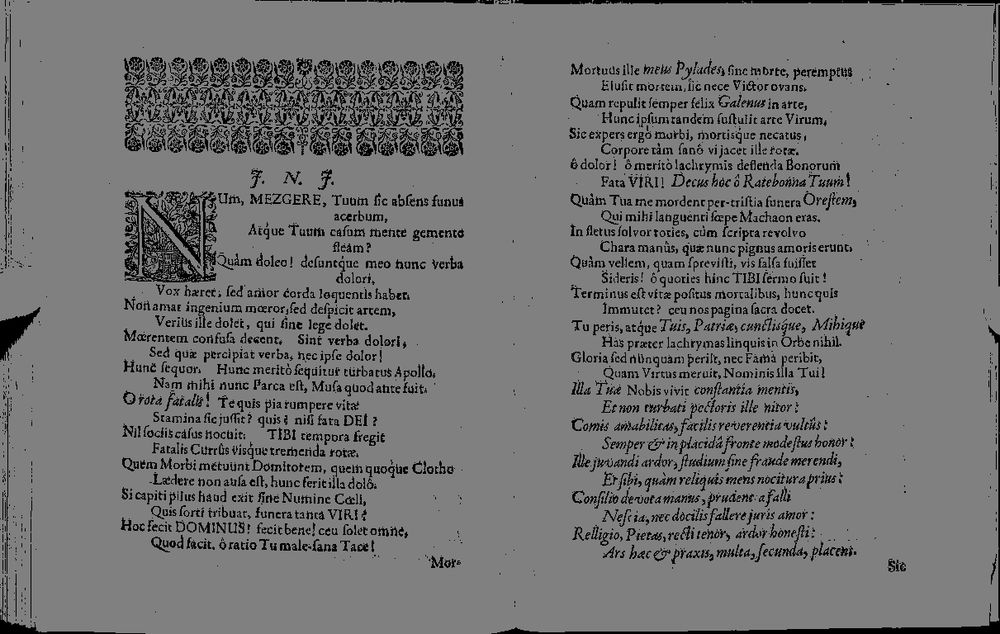 J. N. J.
NUm, MEZGERE, Tuum sic absens funus
acerbum,
Atque Tuum casum mente gemente
fleam?
Quàm doleo! desuntque meo nunc verba
dolori,
Vox hæret; sed amor corda loquentis habet.
Non amat ingenium mœror; sed despicit artem,
Veriùs ille dolet, qui sine lege dolet.
Mœrentem confusa decent. Sint verba dolori,
Sed quæ percipiat verba, nec ipse dolor!
Hunc sequor. Hunc meritò sequitur turbatus Apollo,
Nam mihi nunc Parca est, Musa quod ante fuit.
O rota fatalis! Te quis pia rumpere vitæ
Stamina sic jussit? quis? nisi fata DEI?
Nil sociis casus nocuit: TIBI tempora fregit
Fatalis Currûs visque tremenda rotæ.
Quem Morbi metuunt Domitorem, quem quoque Clotho
Lædere non ausa est, hunc ferit illa dolô.
Si capiti pilus haud exit sine Numine Cœli,
Quis sorti tribuat, funera tanta VIRI?
Hoc fecit DOMINUS! fecit bene! ceu solet omne,
Quod facit. ô ratio Tu male-sana Tace!
Mor-
Mortuus ille meus Pylades, sine morte, peremptus
Elusit mortem, sic nece Victor ovans.
Quam repulit semper felix Galenus in arte,
Hunc ipsum tandem sustulit arte Virum,
Sic expers ergò morbi, mortisque necatus,
Corpore tàm sanô vi jacet ille rotæ.
ô dolor! ô meritò lachrymis deflenda Bonorum
Fata VIRI! Decus hoc ô Ratebonna Tuum!
Quàm Tua me mordent per-tristia funera Orestem,
Qui mihi languenti sæpe Machaon eras.
In fletus solvor toties, cùm scripta revolvo
Chara manûs, quæ nunc pignus amoris erunt.
Quàm vellem, quam sprevisti, vis falsa fuisset
Sideris! ô quoties hinc TIBI sermo fuit!
Terminus est vitæ positus mortalibus, hunc quis
Immutet? ceu nos pagina sacra docet.
Tu peris, atque Tuis, Patriæ, cunctisque, Mihique
Has præter lachrymas linquis in Orbe nihil.
Gloria sed nùnquam periit, nec Fama peribit,
Quam Virtus meruit, Nominis illa Tui!
Illa Tuæ Nobis vivit constantia mentis,
Et non turbati pectoris ille nitor:
Comis amabilitas, facilis reverentia vultûs:
Semper & in placidâ fronte modestus honor:
Ille juvandi ardor, studium sine fraude merendi,
Et sibi, quàm reliquis mens nocitura priùs:
Consilio devota manus, prudens a falli
Nescia, nec docilis fallere juris amor:
Relligio, Pietas, recti tenor, ardor honesti:
Ars hæc & praxis, multa, secunda, placens.
Sic